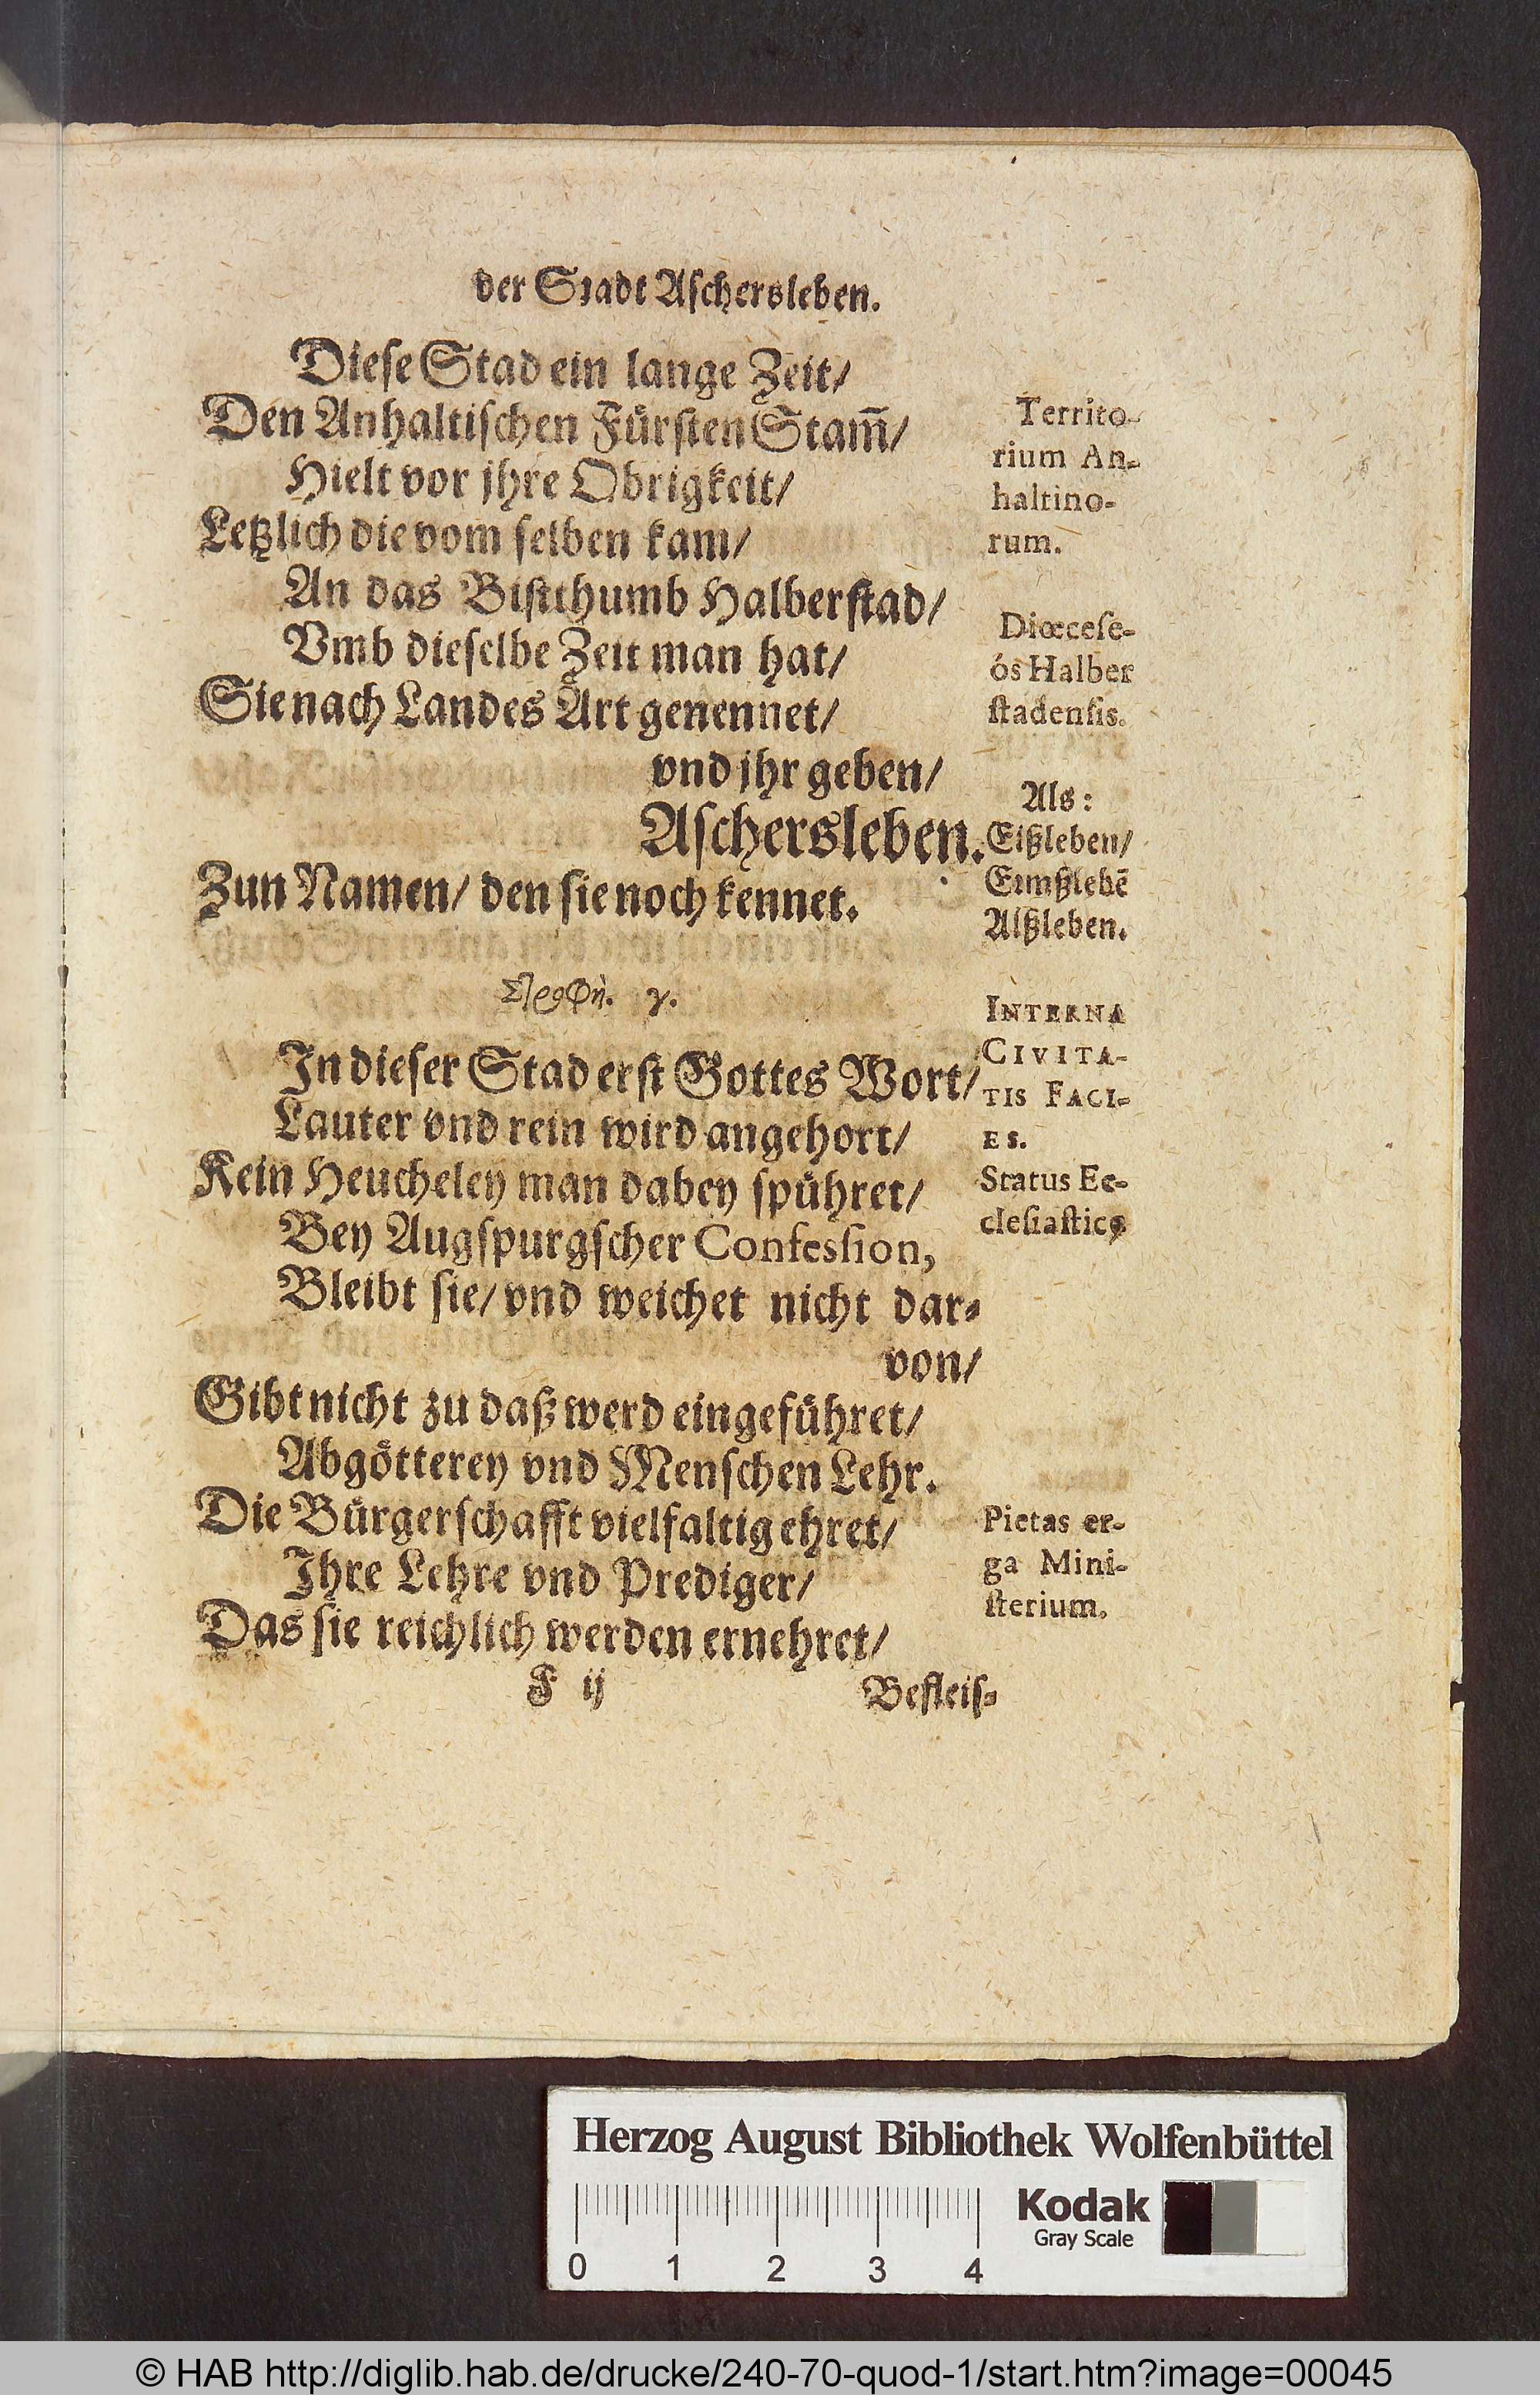 der Stadt Aschersleben.
Diese Stad ein lange Zeit/
Den Anhaltischen Fürsten Stam̃/
Hielt vor jhre Obrigkeit/
Letzlich die vom selben kam/
An das Bistthumb Halberstad/
Vmb dieselbe Zeit man hat/
Sie nach Landes Art genennet/
vnd jhr geben/
Aschersleben.
Zun Namen/ den sie noch kennet.
Στροφὴ. γ.
In dieser Stad erst Gottes Wort/
Lauter vnd rein wird angehort/
Kein Heucheley man dabey spühret/
Bey Augspurgscher Confession,
Bleibt sie/ vnd weichet nicht dar-
von/
Gibt nicht zu daß werd eingeführet/
Abgötterey vnd Menschen Lehr.
Die Bürgerschafft vielfaltig ehret/
Ihre Lehre vnd Prediger/
Das sie reichlich werden ernehret/
F ij
Befleis-
Territo-
rium An-
haltino-
rum.
Diœcese-
ós Halber
stadensis.
Als:
Eißleben/
Eimßlebē
Alßleben.
INTERNA
CIVITA-
TIS FACI-
ES.
Status Ec-
clesiasticꝰ
Pietas er-
ga Mini-
sterium.
Herzog August Bibliothek Wolfenbüttel
Kodak
Gray Scale
0 1 2 3 4
© HAB http://diglib.hab.de/drucke/240-70-quod-1/start.htm?image=00045